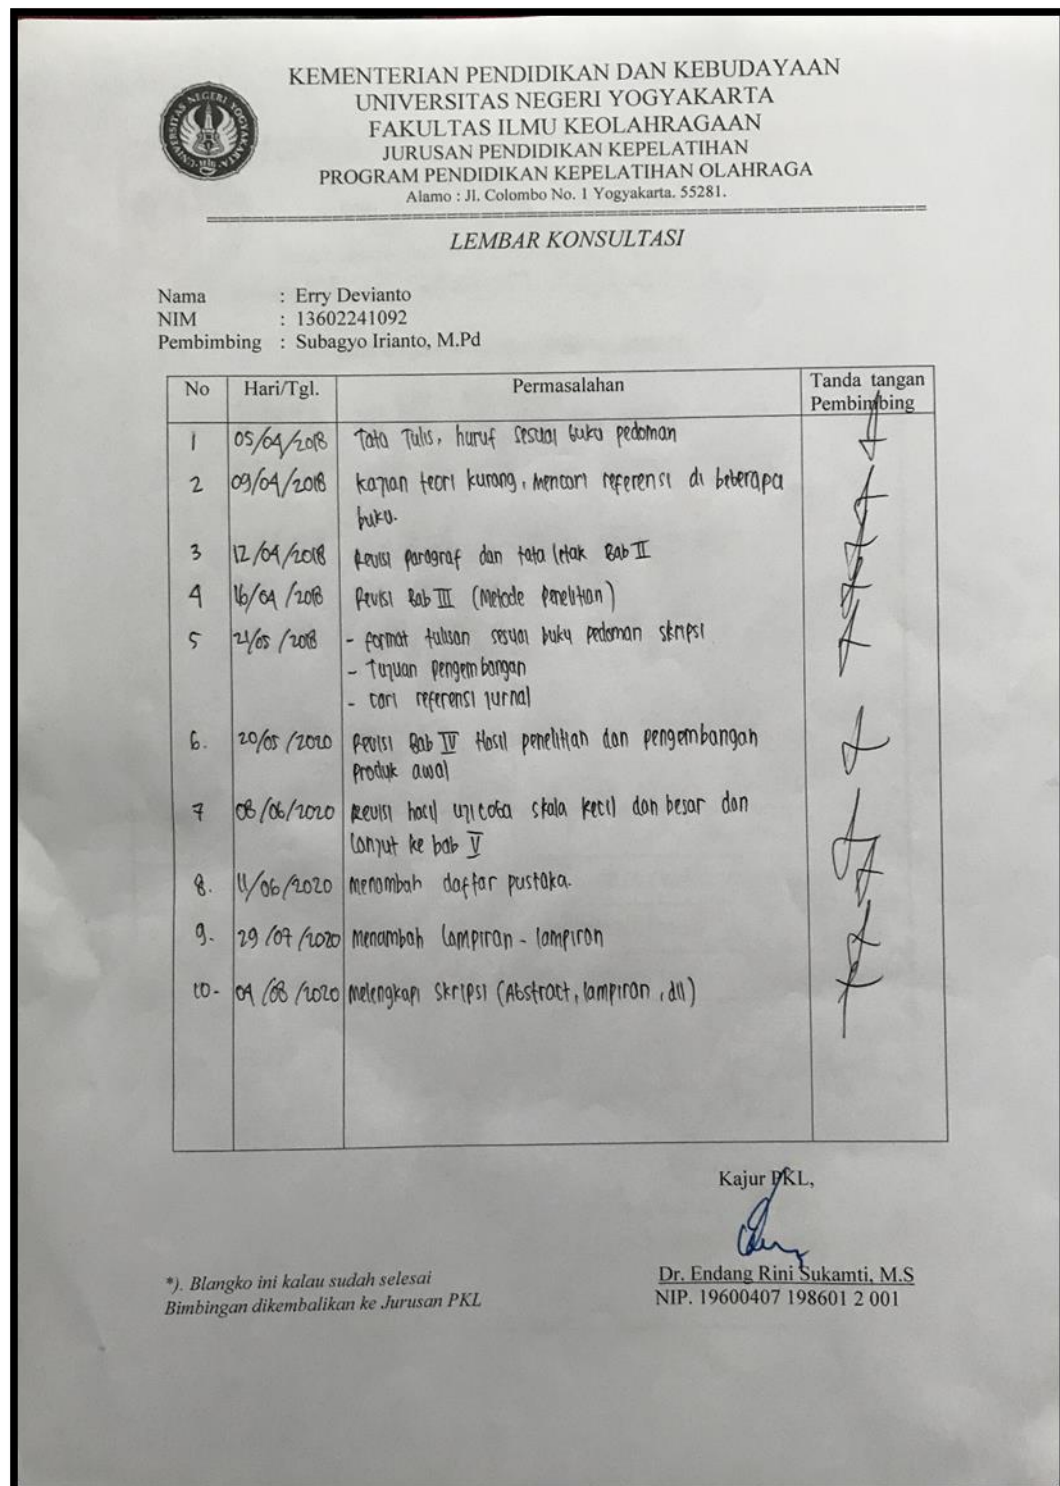 KEMENTERIAN PENDIDIKAN DAN KEBUDAYAAN
UNIVERSITAS NEGERI YOGYAKARTA
FAKULTAS ILMU KEOLAHRAGAAN
JURUSAN PENDIDIKAN KEPELATIHAN
PROGRAM PENDIDIKAN KEPELATIHAN OLAHRAGA
Alamo : Jl. Colombo No. 1 Yogyakarta. 55281.
UNIVERSITAS NEGERI YOGYAKARTA
LEMBAR KONSULTASI
Nama : Erry Devianto
NIM : 13602241092
Pembimbing : Subagyo Irianto, M.Pd
No Hari/Tgl. Permasalahan Tanda tangan
Pembimbing
1 05/04/2018 Tata Tulis, huruf sesuai buku pedoman
2 09/04/2018 kajian teori kurang, mencari referensi di beberapa
buku.
3 12/04/2018 Revisi paragraf dan tata letak Bab II
4 16/04/2018 Revisi Bab III (Metode Penelitian)
5 21/05/2018 - format tulisan sesuai buku pedoman skripsi
- Tujuan pengembangan
- cari referensi jurnal
6. 20/05/2020 Revisi Bab IV Hasil penelitian dan pengembangan
Produk awal
7 08/06/2020 Revisi hasil ujicoba skala kecil dan besar dan
lanjut ke bab V
8. 11/06/2020 menambah daftar pustaka.
9. 29/07/2020 menambah lampiran - lampiran
10- 04/08/2020 melengkapi skripsi (Abstract, lampiran, dll)
Kajur PKL,
Dr. Endang Rini Sukamti, M.S
NIP. 19600407 198601 2 001
*). Blangko ini kalau sudah selesai
Bimbingan dikembalikan ke Jurusan PKL